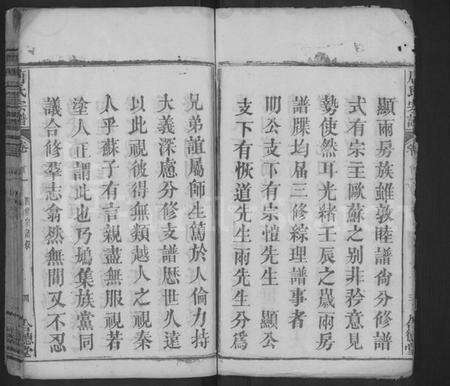 顯兩房族雖敦睦譜尙分修譜
式有宗主歐蘇之别非矜意見
勢使然耳光緒壬辰之歲兩房
譜牒均屆三修綜理譜事者
明公支下有宗愷先生　顯公
支下有恢道先生兩先生分爲
兄弟誼屬師生篤於人倫力持
大義深慮分修支譜歴世久遠
以此視彼得無類越人之視秦
人乎蘇子有言親盡無服視若
塗人正謂此也乃謁集族黨同
議合修羣志翕然無間又不忍
氏宗譜
卷